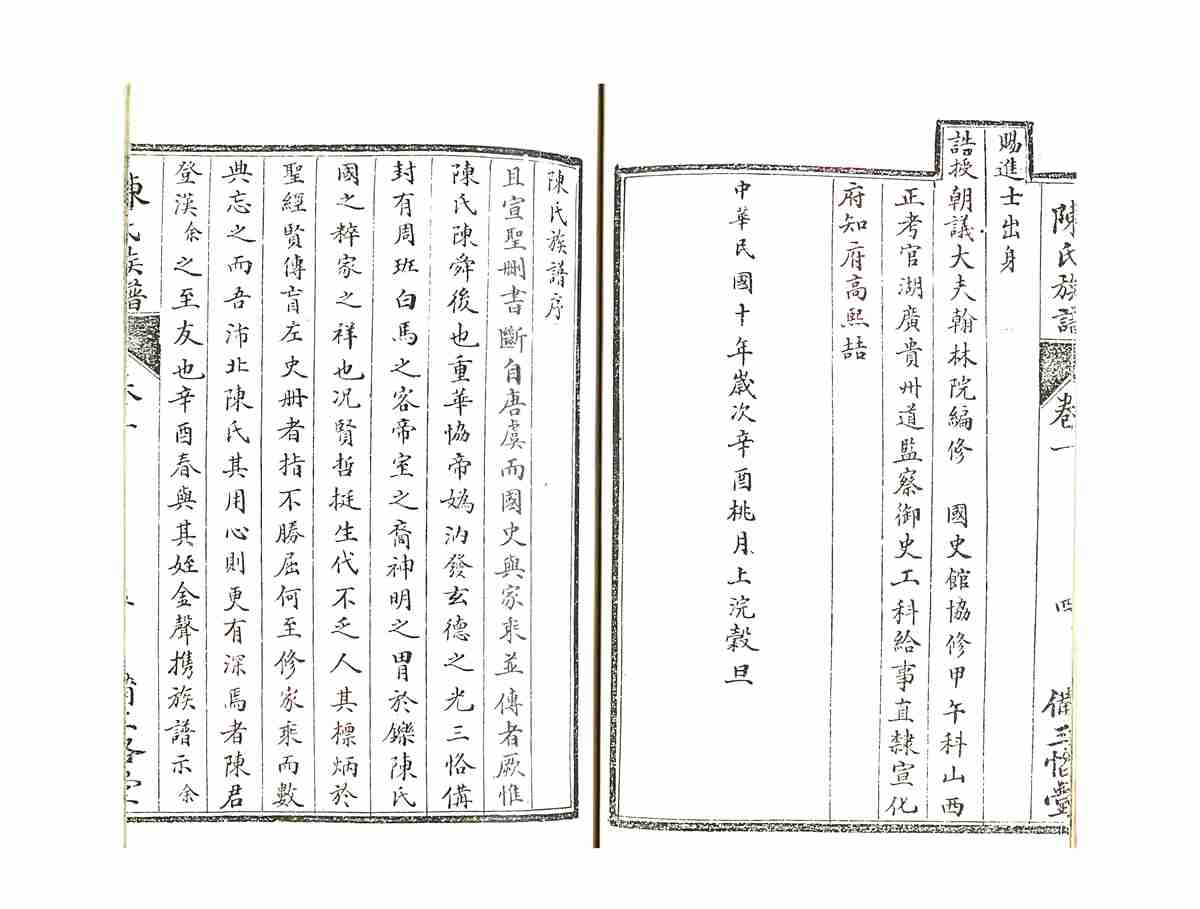 陳氏族譜 卷一 四 備三恪堂
賜進士出身
誥授朝議大夫翰林院編修 國史館協修甲午科山西
正考官湖廣貴州道監察御史工科給事直隸宣化
府知府高熙喆
中華民國十年歲次辛酉桃月上浣穀旦
陳氏族譜序
且宣聖刪書斷自唐虞而國史與家乘並傳者厥惟
陳氏陳舜後也重華協帝媯汭發玄德之光三恪備
封有周班白馬之客帝室之裔神明之胄於鑠陳氏
國之粹家之祥也況賢哲挺生代不乏人其標炳於
聖經賢傳盲左史冊者指不勝屈何至修家乘而數
典忘之而吾沛北陳氏其用心則更有深焉者陳君
登漢余之至友也辛酉春與其姪金聲携族譜示余
陳氏族譜